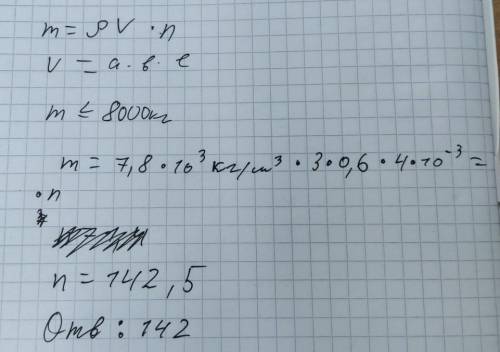 m = ρV · n
V = а · в · е
m ≤ 8000кг
m = 7,8 · 10³ кг/м³ · 3 · 0,6 · 4 · 10⁻³ =
· n
n = 142,5
Отв : 142